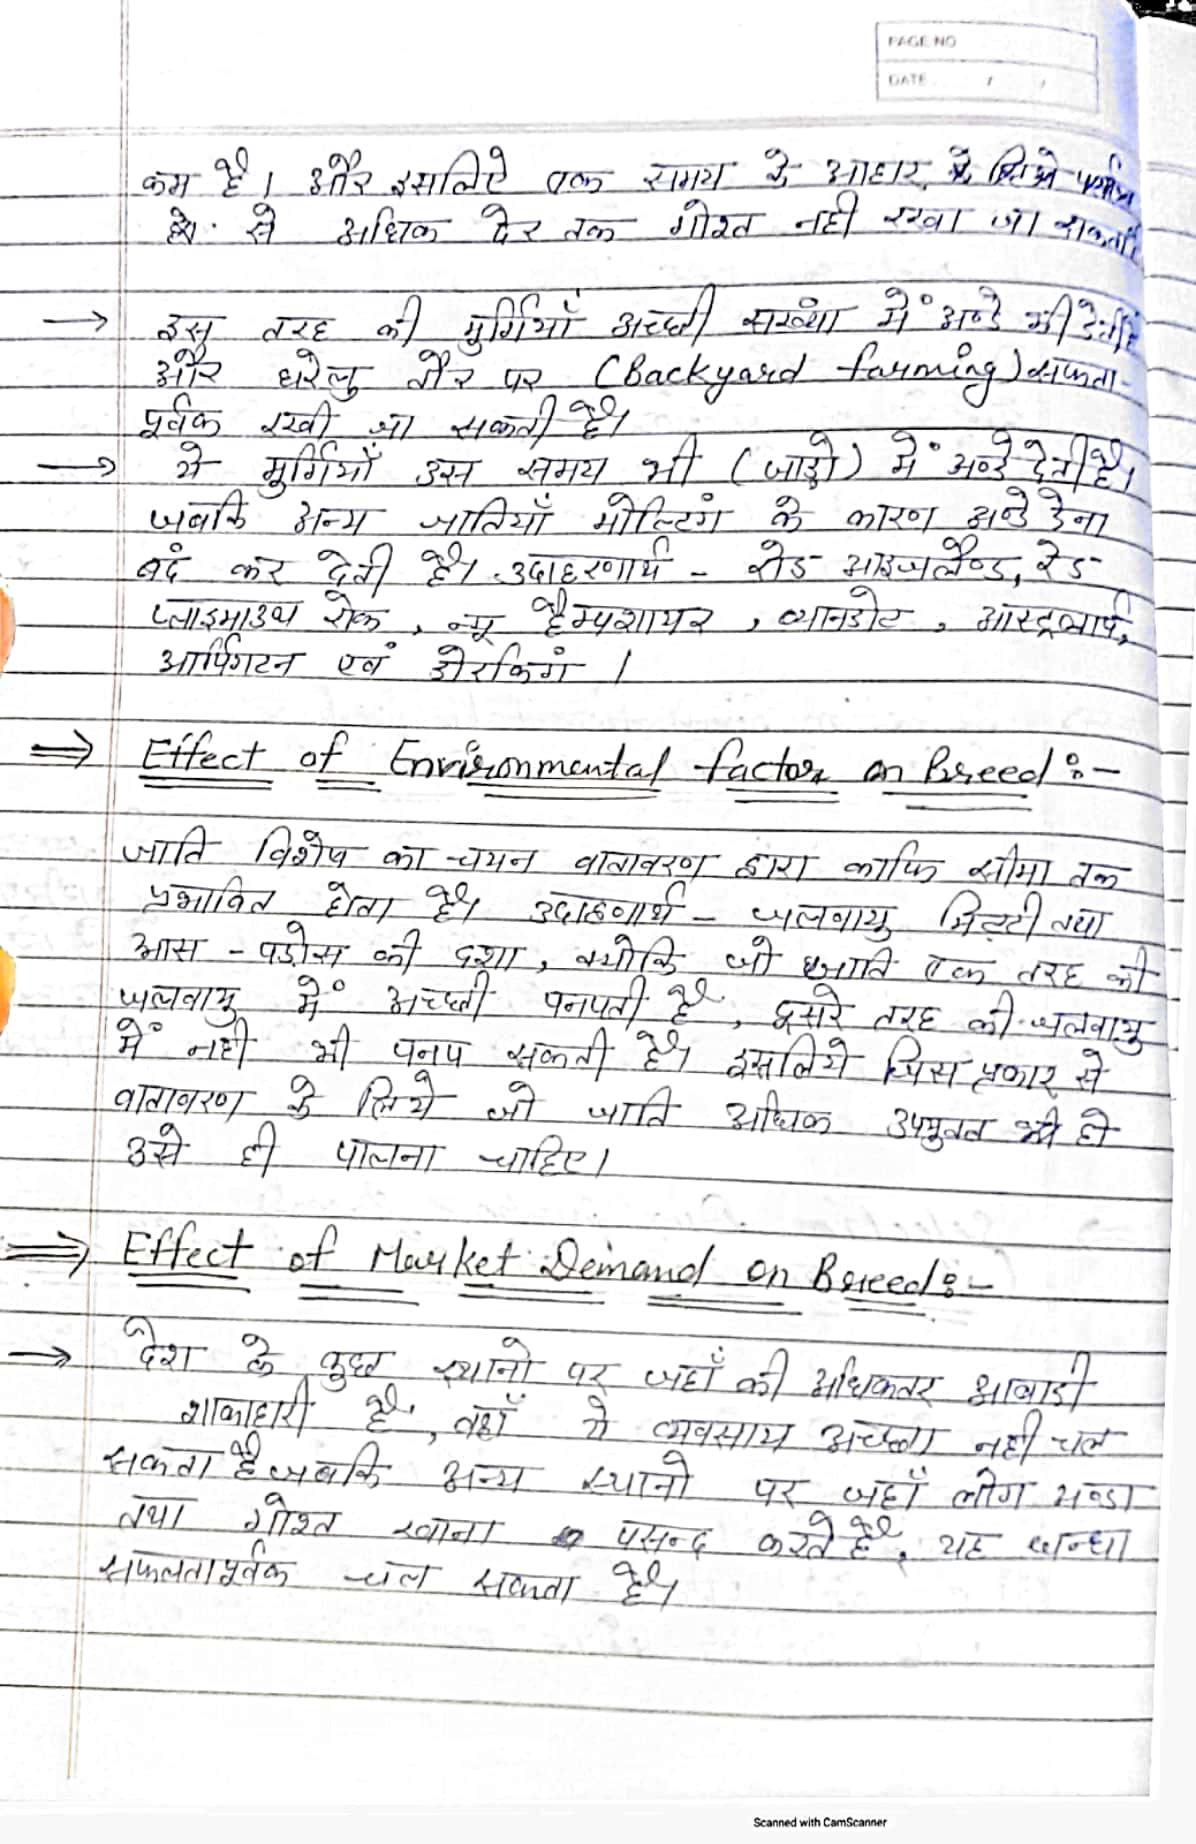 PAGE NO
DATE / /
कम है। और इसलिए एक समय के आहार के लिये पर्याप्त
है। से अधिक देर तक गोश्त नही रखा जा सकता
→ इस तरह की मुर्गियाँ अच्छी संख्या में अण्डे भी देती है
और घरेलु तौर पर (Backyard farming) सफलता-
पूर्वक रखी जा सकती है।
→ ये मुर्गियाँ उस समय भी (जाड़ो) में अण्डे देती है।
जबकि अन्य जातियाँ मोल्टिंग के कारण अण्डे देना
बंद कर देती है। उदाहरणार्थ - रोड आइजलैण्ड, रेड
प्लाइमाउथ रोक, न्यू हैम्पशायर, व्यानडोट, आस्ट्रलार्प,
आर्पिगटन एवं डोरकिगं।
⇒ Effect of Environmental factor on Breed :-
जाति विशेष का चयन वातावरण द्वारा काफि सीमा तक
प्रभावित होता है। उदाहणार्थ - जलवायु मिट्टी तथा
आस - पडोस की दशा, क्योकि जो जाति एक तरह की
जलवायु में अच्छी पनपती है, दूसरे तरह की जलवायु
में नही भी पनप सकती है। इसलिये जिस प्रकार से
वातावरण के लिये जो जाति अधिक उपयुक्त हो
उसे ही पालना चाहिए।
⇒ Effect of Market Demand on Breed :-
→ देश के कुछ स्थानो पर जहाँ की अधिकतर आबादी
शाकाहारी है, वहाँ ये व्यवसाय अच्छा नही चल
सकता है जबकि अन्य स्थानो पर जहाँ लोग अण्डा
तथा गोश्त खाना पसन्द करते है, यह धन्धा
सफलतापूर्वक चल सकता है।
Scanned with CamScanner